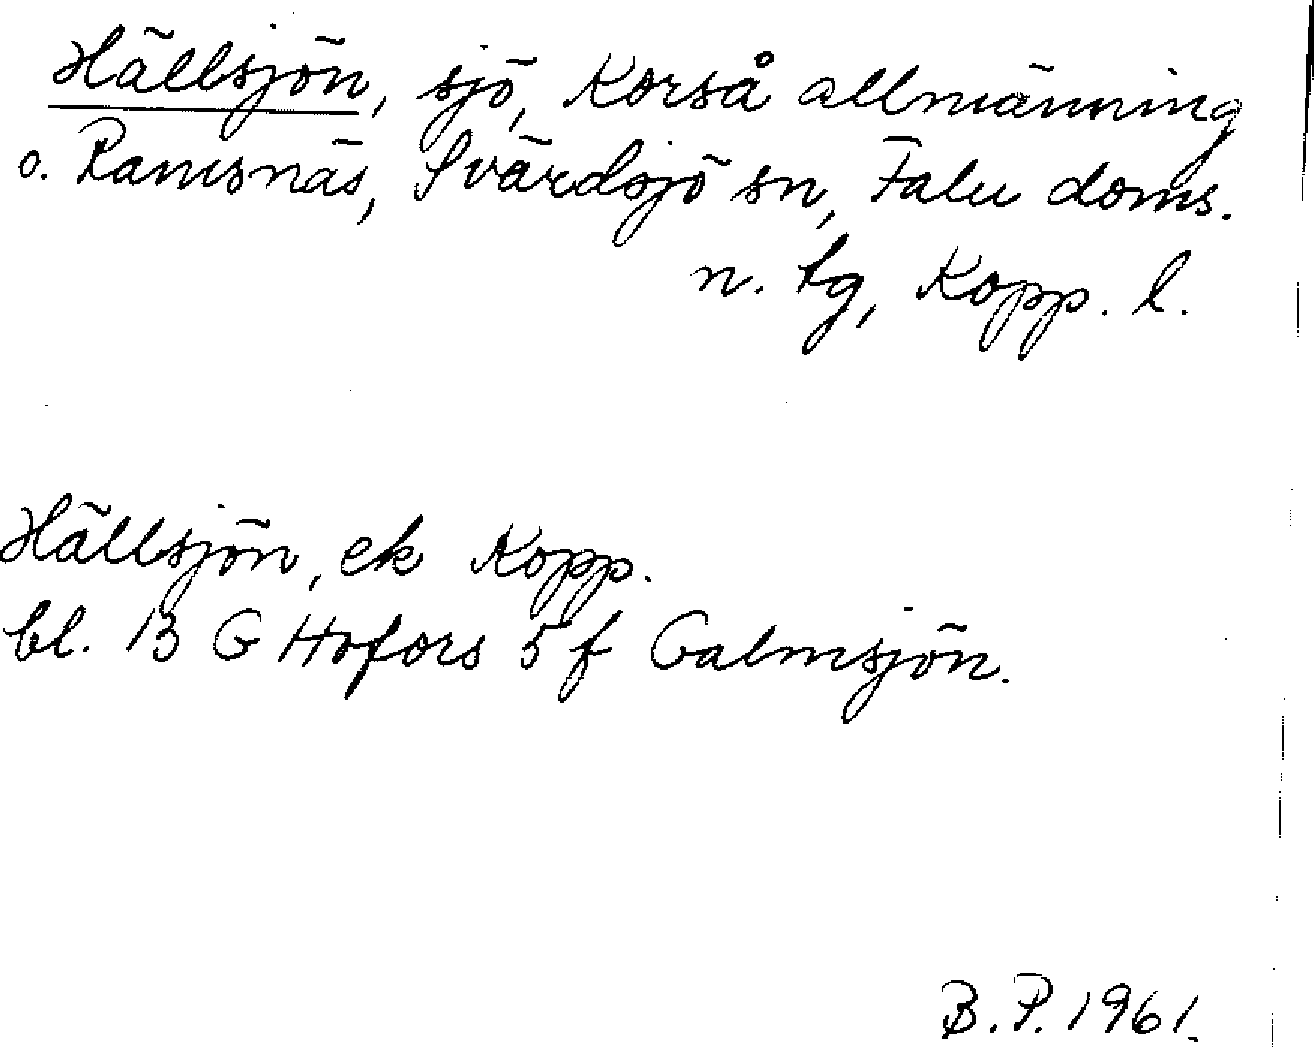 Hällsjön, sjö, Korså allmänning
o. Ramsnäs, Svärdsjö sn, Falu doms.
n. tg, Kopp. l.
Hällsjön, ek Kopp.
bl. 13 G Hofors 5 f Galmsjön.
B. P. 1961.